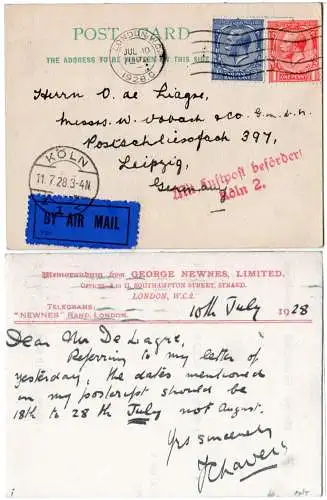 POST CARD
THE ADDRESS TO BE WRITTEN ON THIS SIDE
LONDON
JUL 10
1928
Herrn O. de Liagre,
Messrs. W. Vobach & Co G.m.b.H.
Postschliesfach 397,
Leipzig,
Germany
Mit Luftpost befördert
Köln 2.
KÖLN
11.7.28.3-4N
BY AIR MAIL
Memorandum from GEORGE NEWNES, LIMITED.
Offices 8 to 11, SOUTHAMPTON STREET, STRAND.
LONDON, W.C.2.
TELEGRAMS
"NEWNES" RAND, LONDON.
10th July 1928
Dear Mr De Lagre,
Referring to my letter of
yesterday, the dates mentioned
in my postcript should be
18th to 28th July not August.
Yrs sincerely